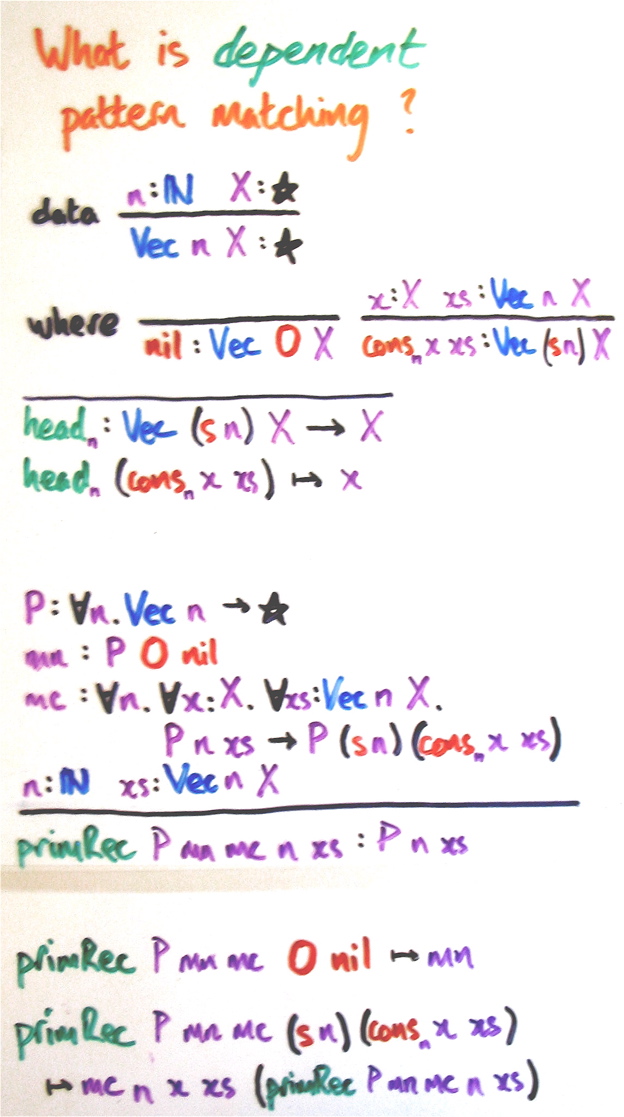 What is dependent
pattern matching ?
data n:ℕ X:★
Vec n X:★
where nil : Vec O X
x:X xs:Vec n X
consₙ x xs:Vec (sn) X
headₙ : Vec (s n) X → X
headₙ (consₙ x xs) ↦ x
P: ∀n. Vec n → ★
mn : P O nil
mc : ∀n. ∀x:X. ∀xs:Vec n X.
P n xs → P (s n) (consₙ x xs)
n:ℕ xs:Vec n X
primRec P mn mc n xs : P n xs
primRec P mn mc O nil ↦ mn
primRec P mn mc (s n) (consₙ x xs)
↦ mc n x xs (primRec P mn mc n xs)